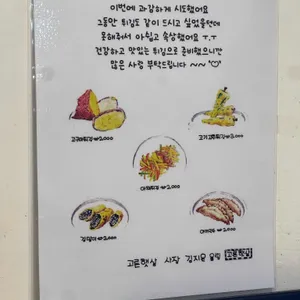 이번에 과감하게 시도했어요
그동안 튀김도 같이 드시고 싶었을텐데
못해줘서 아쉽고 속상했어요 ㅜ.ㅜ
건강하고 맛있는 튀김으로 준비했으니깐
많은 사랑 부탁드립니다 ~~
고구마튀김 ₩2,000
고기고추튀김 ₩2,000
야채튀김 ₩2,000
김말이 ₩2,000
₩2,000
고른햇살 사장 김지윤 올림